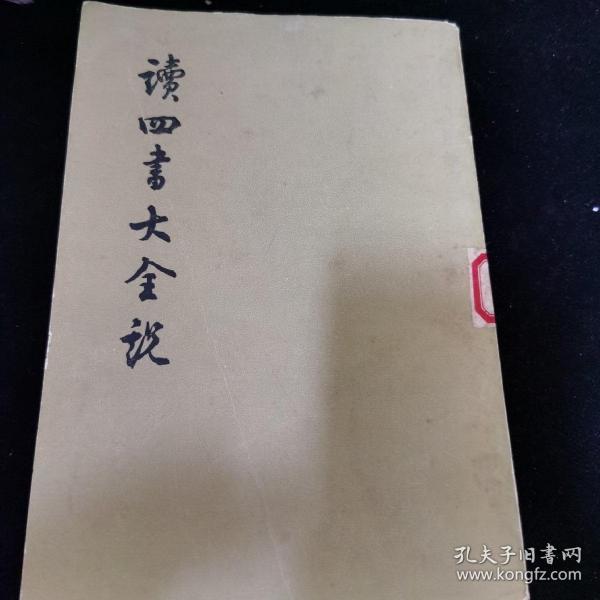 讀四書大全說
孔夫子旧書网
www.kongfz.com